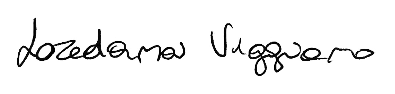 Loredana Viggiano